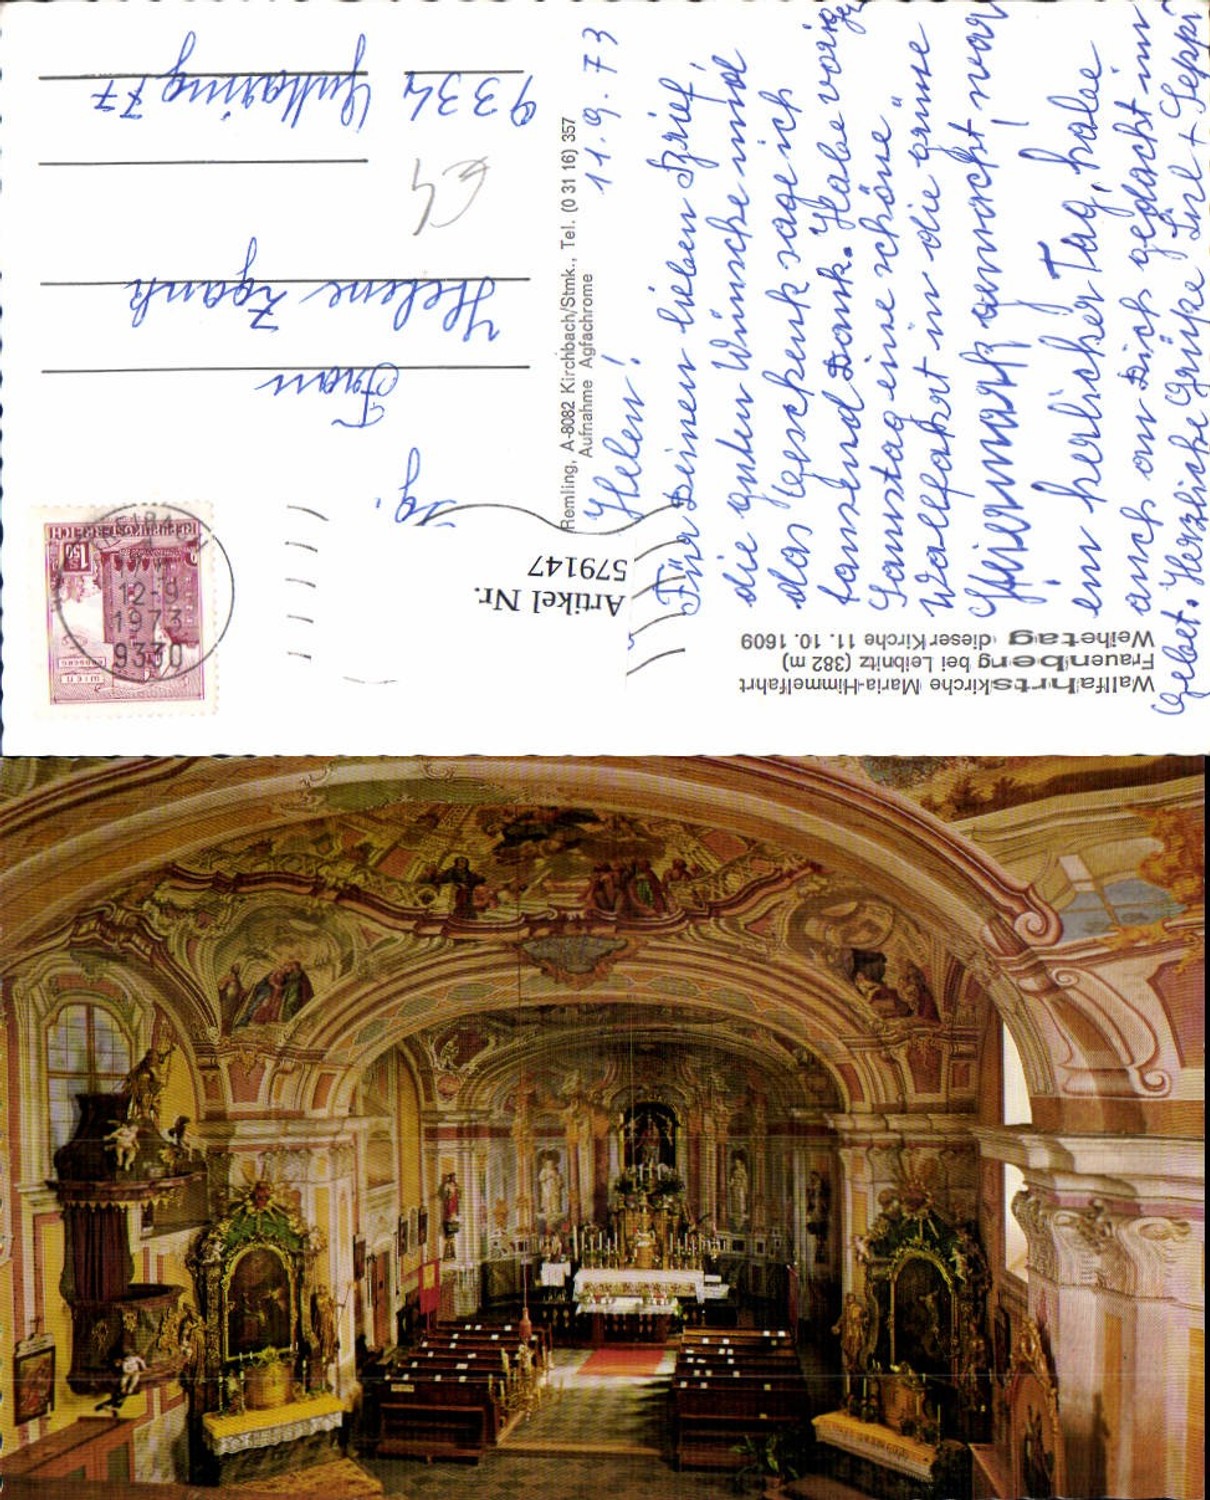 Wallfahrtskirche Maria-Himmelfahrt
Frauenberg bei Leibnitz (382 m)
Weihetag dieser Kirche 11. 10. 1609
Artikel Nr.
579147
Remling, A-8082 Kirchbach/Stmk., Tel. (0 31 16) 357
Aufnahme Agfachrome
11.9.73
Helen!
Für Deinen lieben Brief,
die guten Wünsche und
das Geschenk sage ich
tausend Dank. Habe vorig
Samstag eine schöne
Wallfahrt in die grüne
Steiermark gemacht war
ein herlicher Tag, habe
auch an Dich gedacht im
Gebet. Herzliche Grüße Lisl + Seppi
REPUBLIK ÖSTERREICH
S 1.50
12-9
1973
9330
Frau
Helene
9334 Guttaring 77
€4